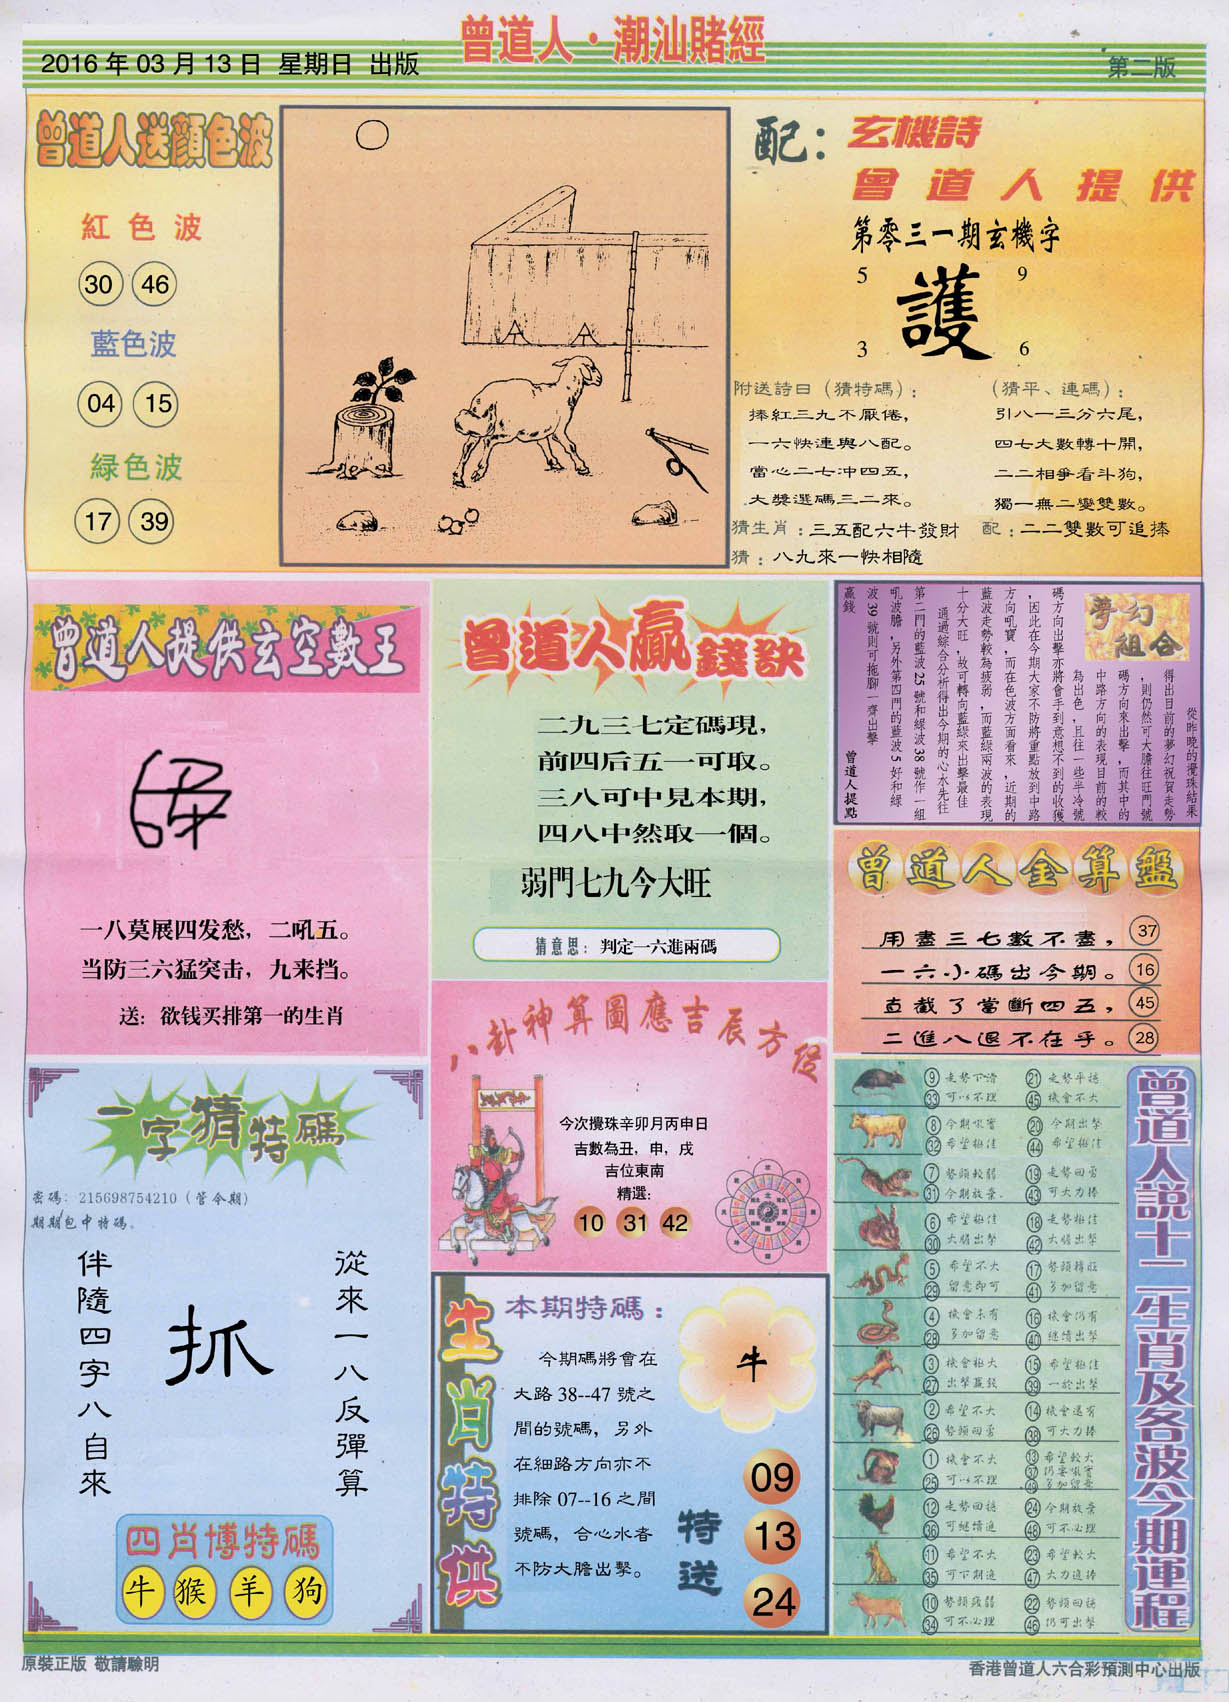 曾道人·潮汕賭經
2016 年 03 月 13 日  星期日  出版
第二版
曾道人送顏色波
紅色波
30 46
藍色波
04 15
緑色波
17 39
配：玄機詩
曾道人提供
第零三一期玄機字
5 9
護
3 6
附送詩曰（猜特碼）：
捧紅三九不厭倦，
一六快連與八配。
當心二七冲四五，
大獎選碼三二來。
（猜平、連碼）：
引八一三分六尾，
四七大數轉十開，
二二相爭看斗狗，
獨一無二變雙數。
猜生肖：三五配六牛發財
配：二二雙數可追捧
猜：八九來一快相隨
曾道人提供玄空數王
一八莫展四发愁，二吼五。
当防三六猛突击，九来挡。
送：欲钱买排第一的生肖
曾道人贏錢訣
二九三七定碼現，
前四后五一可取。
三八可中見本期，
四八中然取一個。
弱門七九今大旺
猜意思：判定一六進兩碼
夢幻組合
從昨晚的攪珠結果
得出目前的夢幻祝賀走勢
，則仍然可大膽往旺門號
碼方向來出擊，而其中的
中路方向的表現目前的較
為出色，且往一些半冷號
碼方向出擊亦將會手到意想不到的收獲
，因此在今期大家不防將重點放到中路
方向吼寶，而在色波方面看來，近期的
藍波走勢較為疲弱，而藍綠兩波的表現
十分大旺，故可轉向藍綠來出擊最佳
通過綜合分析得出今期的心水先往
第二門的藍波 25 號和綠波 38 號作一組
吼波膽，另外第四門的藍波 5 好和綠
波 39 號則可拖腳一齊出擊
贏錢
曾道人提點
曾道人金算盤
用盡三七數不盡， 37
一六小碼出今期。 16
直截了當斷四五， 45
二進八退不在乎。 28
八卦神算圖應吉辰方位
今次攪珠辛卯月丙申日
吉數為丑，申，戌
吉位東南
精選:
10 31 42
一字猜特碼
密碼：215698754210（管令期）
期期包中特碼。
從來一八反彈算
抓
伴隨四字八自來
四肖博特碼
牛 猴 羊 狗
生肖特供
本期特碼：
今期碼將會在
大路 38--47 號之
間的號碼，另外
在細路方向亦不
排除 07--16 之間
號碼，合心水者
不防大膽出擊。
牛
特送
09
13
24
曾道人説十二生肖及各波今期運程
9 走勢下滑 21 走勢平穩
33 可以不理 45 機會不大
8 今期吼實 20 今期出擊
32 希望極佳 44 希望極佳
7 勢頭較弱 19 走勢回勇
31 今期放棄 43 可大力捧
6 希望極佳 18 走勢極佳
30 大膽出擊 42 大膽出擊
5 希望不大 17 勢頭轉旺
29 留意即可 41 多加留意
4 機會未有 16 機會仍有
28 多加留意 40 繼續出擊
3 機會極大 15 希望極佳
27 出擊贏錢 39 一於出擊
2 希望不大 14 機會還有
26 勢頭回勇 38 可大力捧
1 機會不大 13 希望較大
25 可以不理 37 仍要吼實
49 多加留意
12 走勢回穩 24 今期放棄
36 可繼續追 48 可不必理
11 希望不大 23 希望較大
35 可下期追 47 大力追捧
10 勢頭疲弱 22 勢頭回穩
34 可不必理 46 仍可出擊
原裝正版  敬請驗明
香港曾道人六合彩預測中心出版